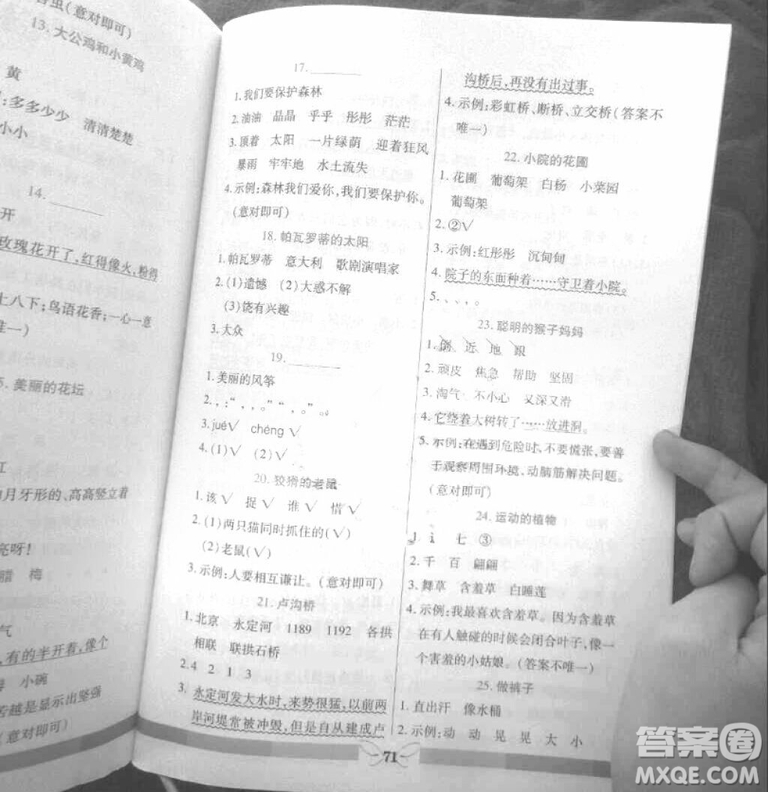 害虫(意对即可)
13. 大公鸡和小黄鸡
黄
:多多少少 清清楚楚
小小
14.
开
玫瑰花开了,红得像火,粉得
上八下;鸟语花香;一心一意
唯一)
5. 美丽的花坛
江
如月牙形的、高高竖立着
亮呀!
腊 梅
气
,有的半开着,像个
得 小碗
苦越是显示出坚强
(意对即可)
17.
1. 我们要保护森林
2. 油油 晶晶 乎乎 彤彤 茫茫
3. 顶着 太阳 一片绿荫 迎着狂风
暴雨 牢牢地 水土流失
4. 示例:森林我们爱你,我们要保护你。
(意对即可)
18. 帕瓦罗蒂的太阳
1. 帕瓦罗蒂 意大利 歌剧演唱家
2. (1)遗憾 (2)大惑不解
(3)饶有兴趣
3. 大众
19.
1. 美丽的风筝
2. , : “ , , 。” “ , 。”
3. jué√ chéng √
4. (1)√ (2)√
20. 狡猾的老鼠
1. 该√ 捉√ 谁√ 惜√
2. (1)两只猫同时抓住的(√)
(2)老鼠(√)
3. 示例:人要相互谦让。(意对即可)
21. 卢沟桥
1. 北京 永定河 1189 1192 各拱
相联 联拱石桥
2. 4 2 1 3
3. 永定河发大水时,来势很猛,以前两
岸河堤常被冲毁,但是自从建成卢
沟桥后,再没有出过事。
4. 示例:彩虹桥、断桥、立交桥(答案不
唯一)
22. 小院的花圃
1. 花圃 葡萄架 白杨 小菜园
葡萄架
2. ②√
3. 示例:红彤彤 沉甸甸
4. 院子的东面种着……守卫着小院。
5. 、 、 、 。
23. 聪明的猴子妈妈
1. 倒 近 地 跟
2. 顽皮 焦急 帮助 坚固
3. 淘气 不小心 又深又滑
4. 它绕着大树转了……放进洞。
5. 示例:在遇到危险时,不要慌张,要善
于观察周围环境,动脑筋解决问题。
(意对即可)
24. 运动的植物
1. i 七 ③
2. 千 百 翩翩
3. 舞草 含羞草 白睡莲
4. 示例:我最喜欢含羞草。因为含羞草
在有人触碰的时候会闭合叶子,像一
个害羞的小姑娘。(答案不唯一)
25. 做裤子
1. 直出汗 像水桶
2. 示例:动 动 晃 晃 大 小
71
答案圈
MXQE.COM